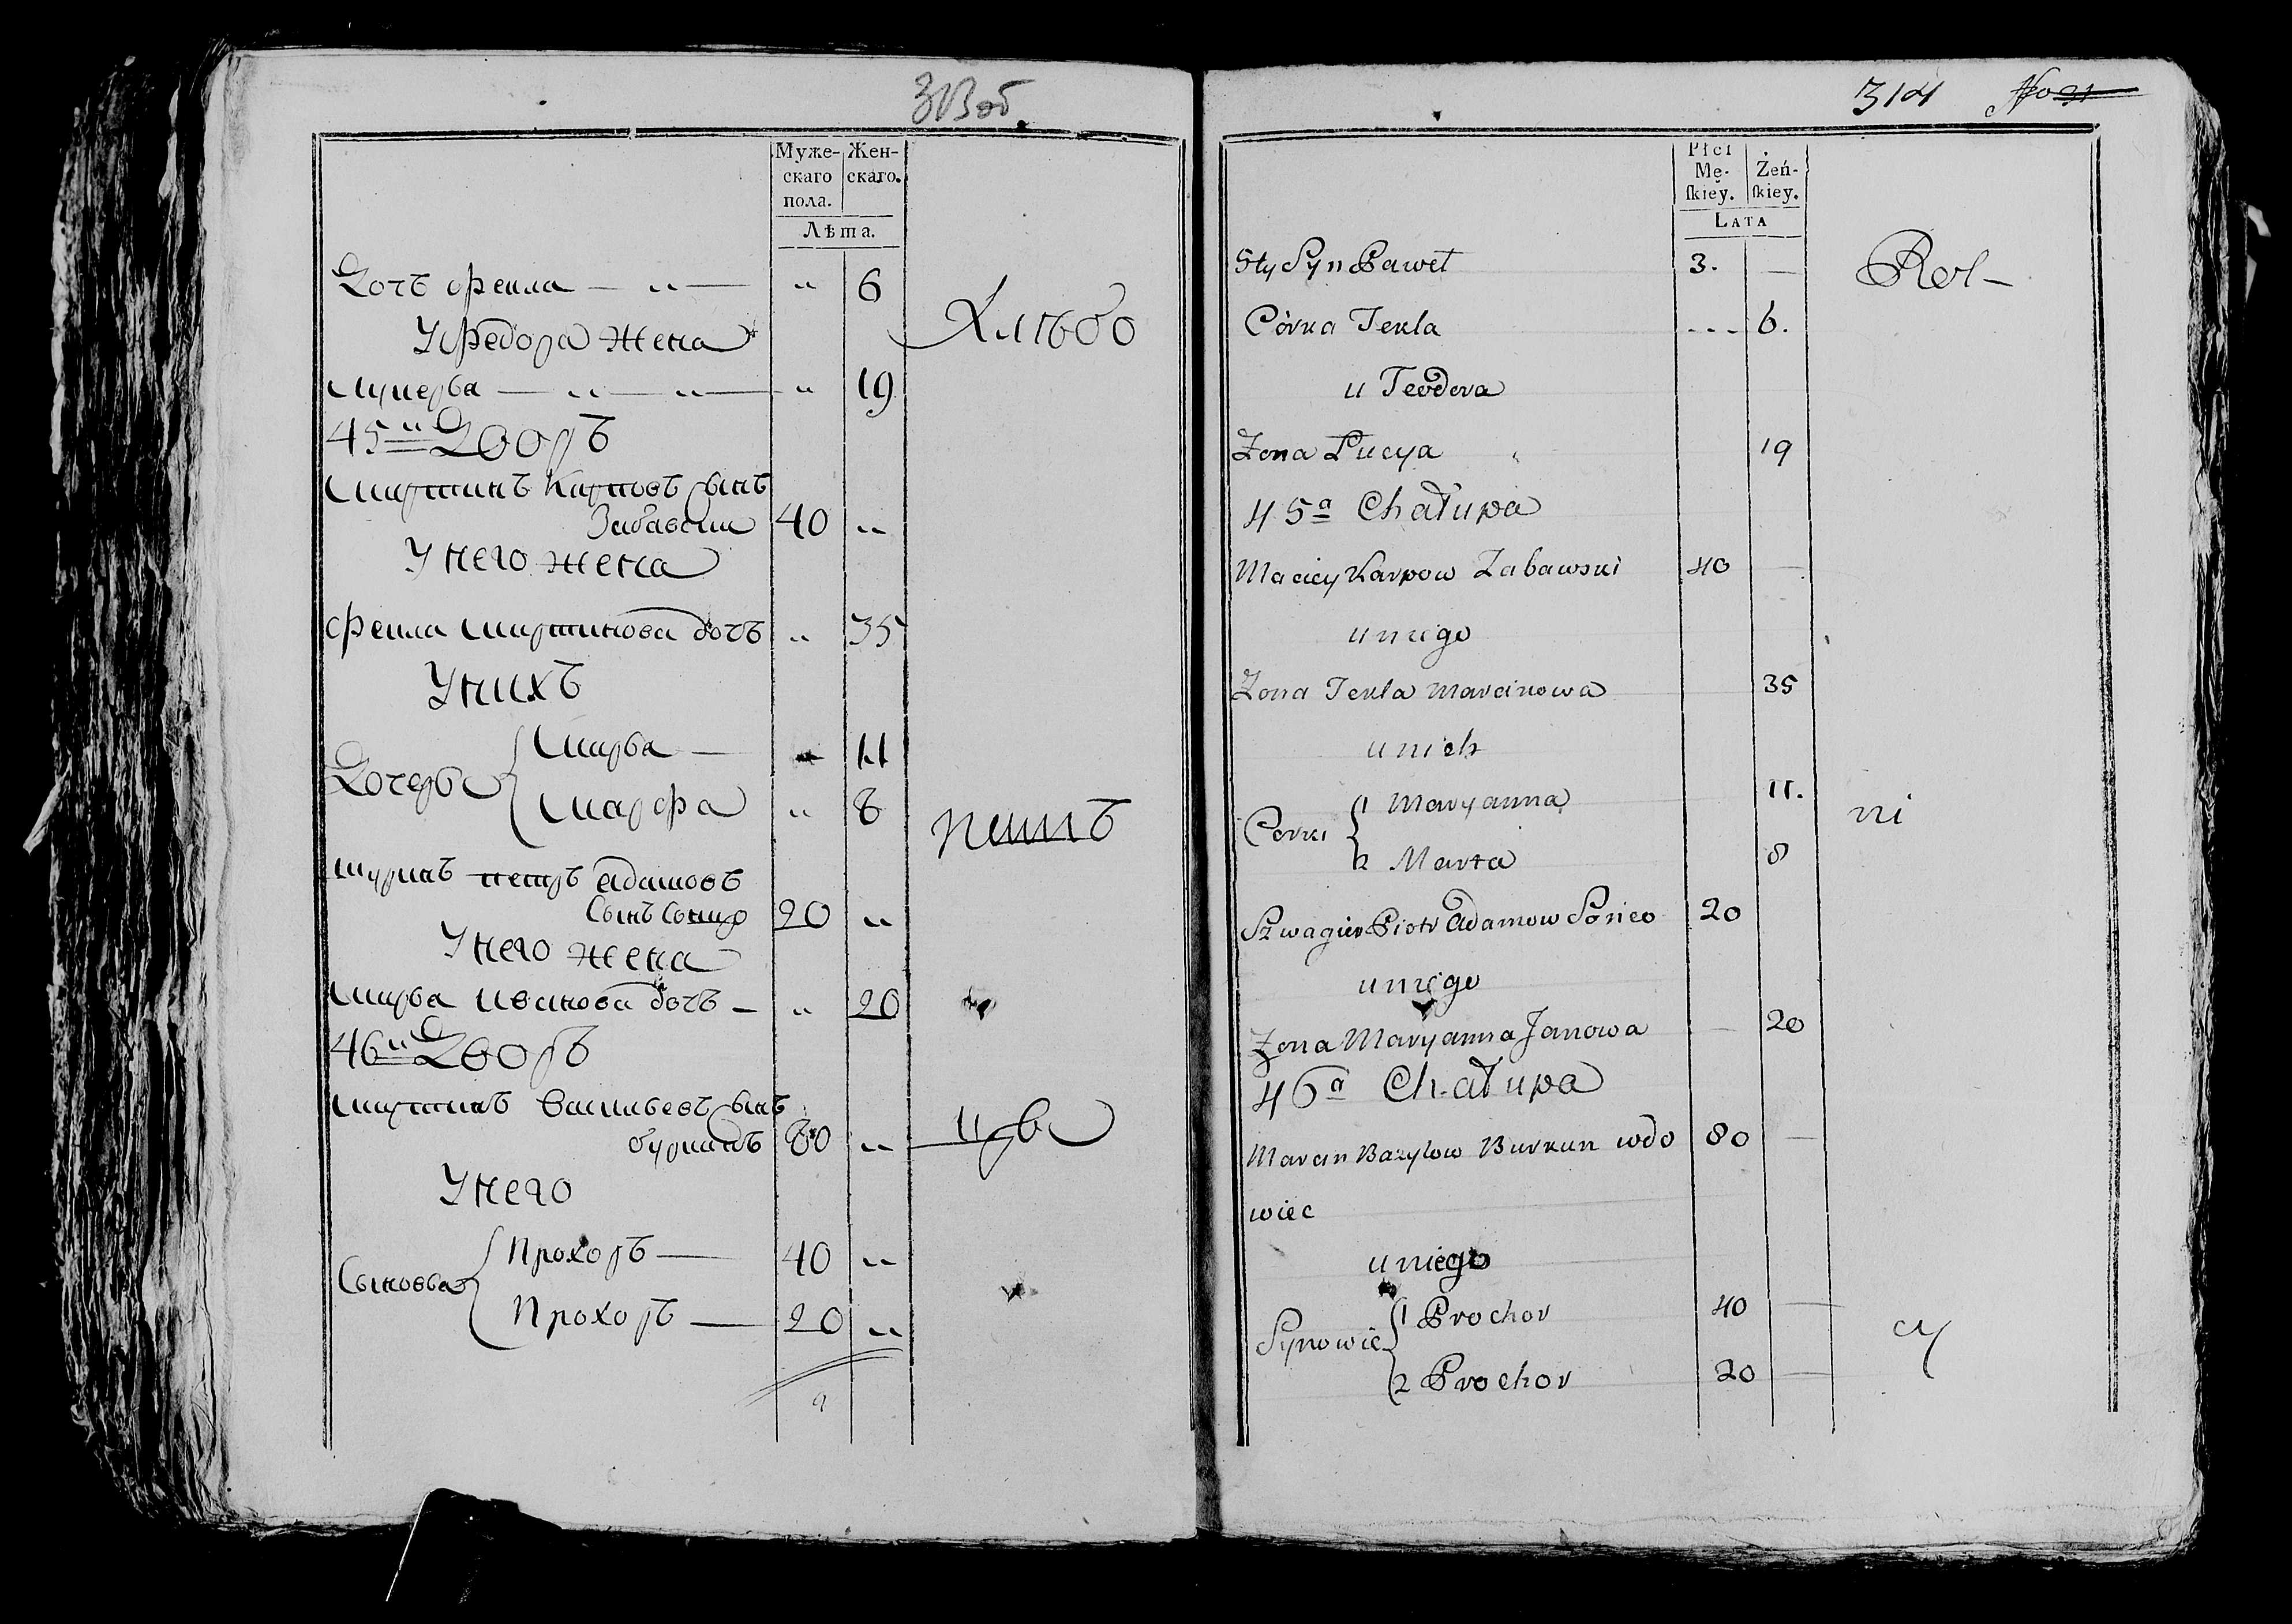 313об.
Муже-
скаго
пола.
Жен-
скаго.
Лѣта.
Дочь Фекла — „ — „ 6
У Федора жена
Лукерья — „ — „ — „ 19
45й Дворъ
Мартинъ Карповъ сынъ
Забавски 40 „
У него жена
Фекла Мартинова дочь „ 35
У нихъ
Дочерьи
Марья — „ 11
Марфа „ 8
Шуринъ Петръ Адамовъ
сынъ 20 „
У него жена
Марья Иванова дочь — „ 20
46й Дворъ
Мартинъ Васильевъ сынъ
Буркунъ 80 „
У него
Сыновья
Прохоръ — 40 „
Прохоръ — 20 „
Хлѣбо
пашъ
цы
314 No 31
Płci
Mę-
ſkiey.
Żeń-
ſkiey.
LATA
5ty Syn Paweł 3. —
Córka Tekla --- 6.
u Teodora
Zona Łucya 19
45a Chałupa
Maciey Karpow Zabawski 40 —
u niego
Zona Tekla Marcinowa 35
u nich
Corki
1 Maryanna 11.
2 Marta 8
Szwagier Piotr Adamow 20
u niego
Zona Maryanna Janowa — 20
46a Chałupa
Marcin Bazylow Burkun wdo 80 —
wiec
u niego
Synowie
1 Prochor 40 —
2 Prochor 20 —
Rol-
ni
cy